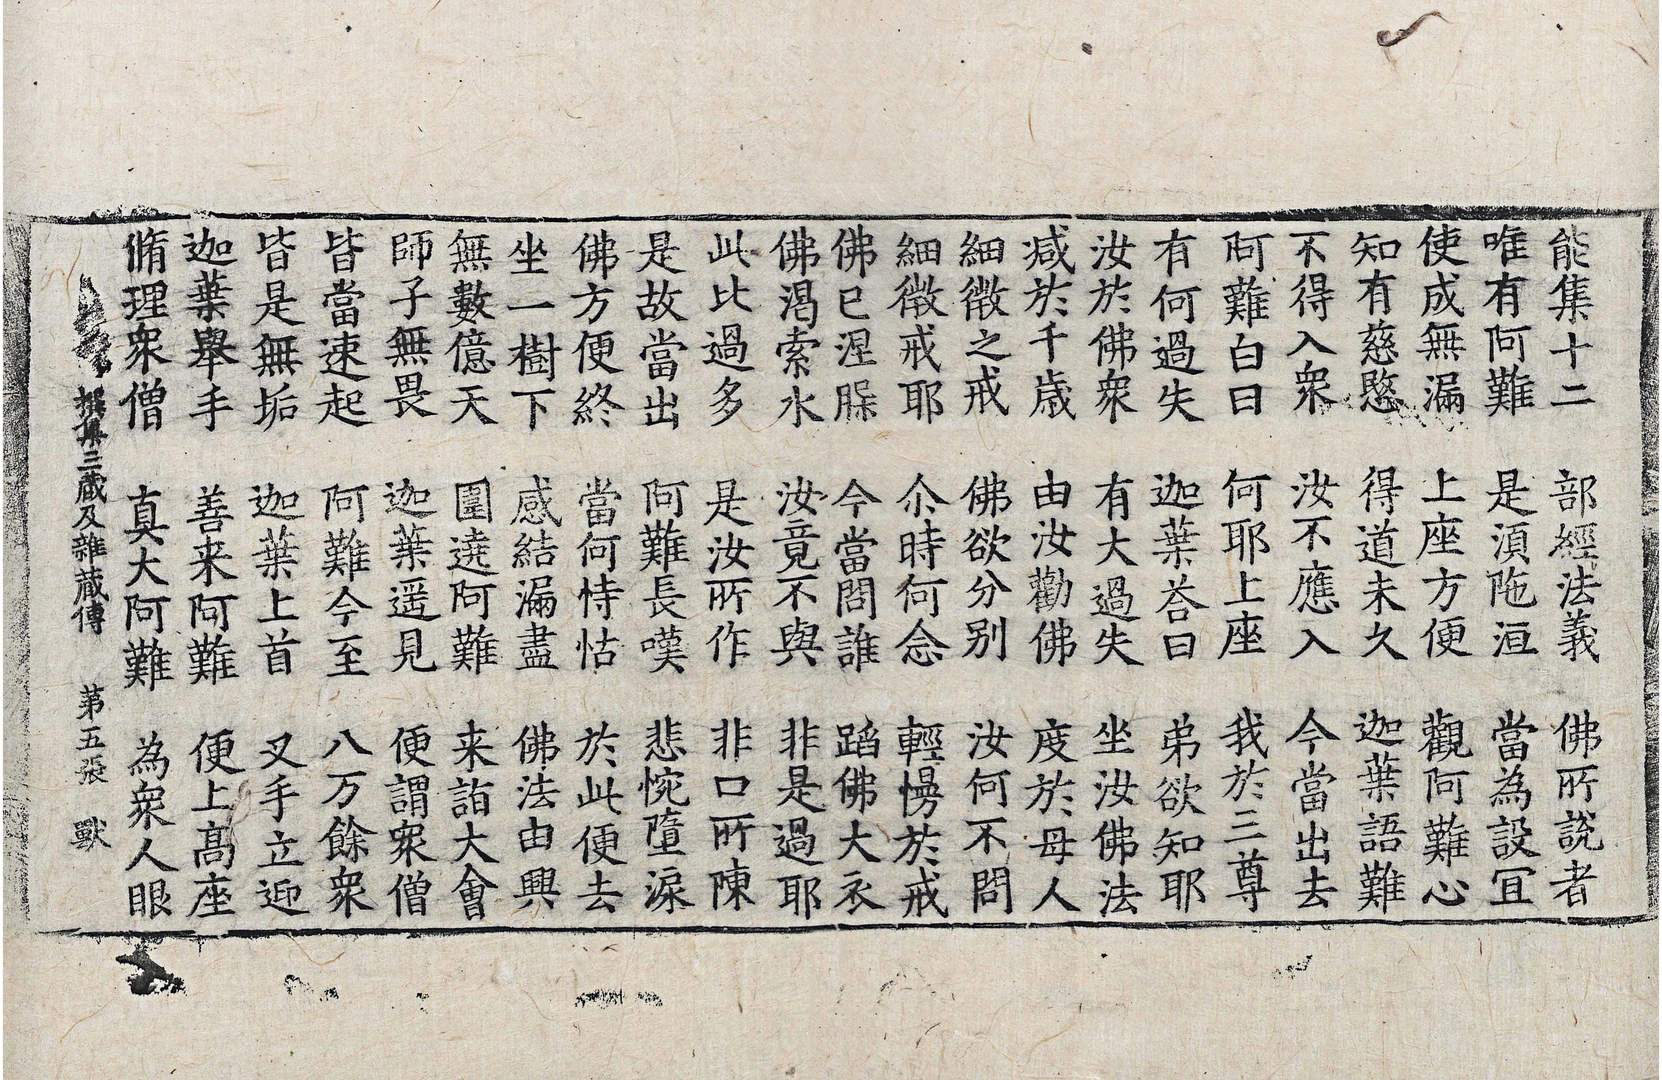 能集十二 部經法義 佛所說者
唯有阿難 是湏陁洹 當為設冝
使成無漏 上座方便 觀阿難心
知有慈愍 得道未久 迦葉語難
不得入衆 汝不應入 今當出去
阿難白曰 何耶上座 我於三尊
有何過失 迦葉荅曰 弟欲知耶
汝於佛衆 有大過失 坐汝佛法
减於千歲 由汝勸佛 度於母人
細微之戒 佛欲分別 汝何不問
細微戒耶 尒時何念 輕慢於戒
佛已涅槃 今當問誰 蹈佛大衣
佛渴索水 汝竟不與 非是過耶
此比過多 是汝所作 非口所陳
是故當出 阿難長嘆 悲惋墮淚
佛方便終 當何恃怙 於此便去
坐一樹下 感結漏盡 佛法由興
無數億天 圍遶阿難 来詣大會
師子無畏 迦葉遥見 便謂衆僧
皆當速起 阿難今至 八万餘衆
皆是無垢 迦葉上首 叉手立迎
迦葉舉手 善来阿難 便上髙座
脩理衆僧 真大阿難 為衆人眼
撰集三藏及雜藏傳 苐五張 獸